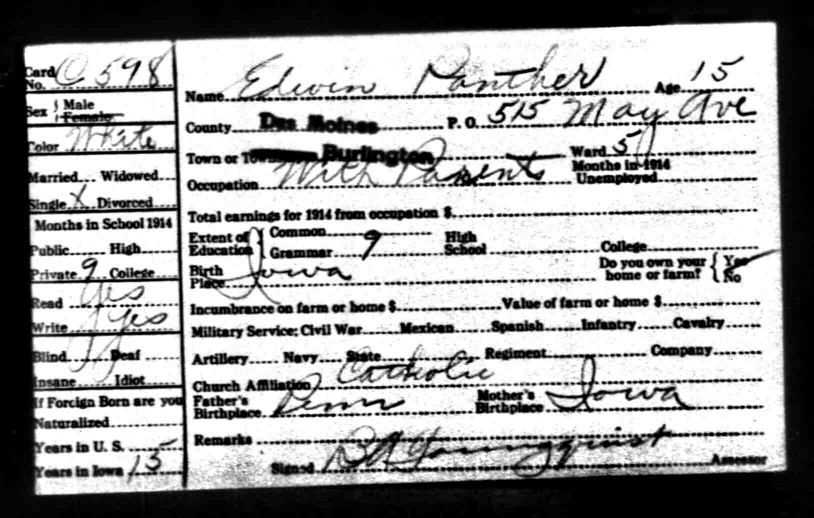 Card No. C 598
Sex Male Female
Color White
Married Widowed
Single X Divorced
Months in School 1914
Public High
Private 9 College
Read Yes
Write Yes
Blind Deaf
Insane Idiot
If Foreign Born are you
Naturalized
Years in U. S.
Years in Iowa 15
Name Edwin Panther Age 15
County Des Moines P. O. 515 May Ave
Town or Burlington Ward 5
Occupation With Parents Months in 1914 Unemployed
Total earnings for 1914 from occupation $
Extent of Education Common High School College
Grammar 9
Birth Place Iowa Do you own your home or farm? Yes No
Incumbrance on farm or home $ Value of farm or home $
Military Service; Civil War Mexican Spanish Infantry Cavalry
Artillery Navy State Regiment Company
Church Affiliation Catholic
Father's Birthplace Penn Mother's Birthplace Iowa
Remarks
Signed Assessor